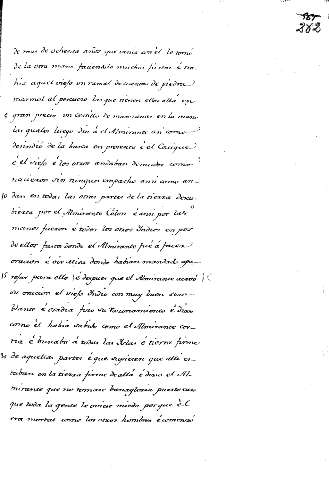 262
de mas de ochenta años que venia con él le tomó
de la otra mano faciendole muchas fiestas é tra-
hia aquel viejo un ramal de cuentas de piedra
marmol al pescuezo las que tienen ellos alla en
5 gran precio un cestillo de manzanas en la mano
las quales luego dió á el Almirante assi como
descendió de la barca en presente é el Cacique
é el viejo é los otros andaban desnudos como
nacieron sin ningun empacho ansi como an-
10 dan en todas las otras partes de la tierra descu-
bierta por el Almirante Colon é ansi por las
manos fueron é todos los otros Indios en pos
de ellos fasta donde el Almirante fué á facer
oracion é oir Misa donde habian mandado apa-
15 rejar para ello é despues que el Almirante acabó
su oracion el viejo Indio con muy buen sem-
blante é osadia fizo su razonamiento é dixo
como él habia sabido como el Almirante cor-
ria é buscaba á todas las Islas é tierra firme
20 de aquellas partes é que supiesen que alli es-
taban en la tierra firme de allá é dixo el Al-
mirante que no tomase banagloria puesto caso
que toda la gente le oviese miedo porque él
era mortal como los otros hombres é comenzó